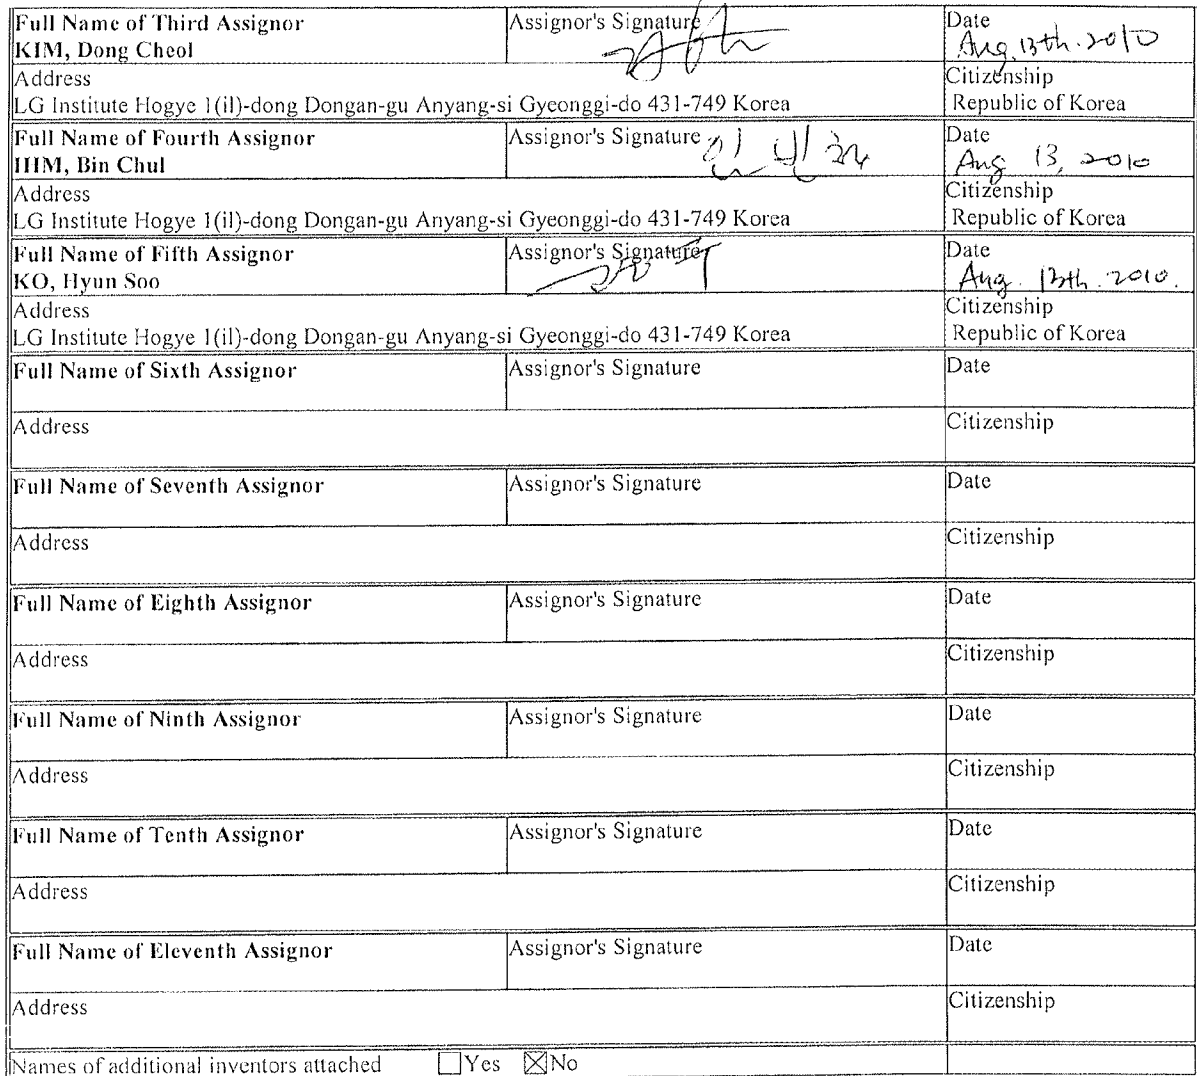 Full Name of Third Assignor Assignor's Signature Date
KIM, Dong Cheol Aug. 13th. 2010
Address Citizenship
LG Institute Hogye 1(il)-dong Dongan-gu Anyang-si Gyeonggi-do 431-749 Korea Republic of Korea
Full Name of Fourth Assignor Assignor's Signature 임빈철 Date
IHM, Bin Chul Aug 13, 2010
Address Citizenship
LG Institute Hogye 1(il)-dong Dongan-gu Anyang-si Gyeonggi-do 431-749 Korea Republic of Korea
Full Name of Fifth Assignor Assignor's Signature Date
KO, Hyun Soo Aug. 13th. 2010.
Address Citizenship
LG Institute Hogye 1(il)-dong Dongan-gu Anyang-si Gyeonggi-do 431-749 Korea Republic of Korea
Full Name of Sixth Assignor Assignor's Signature Date
Address Citizenship
Full Name of Seventh Assignor Assignor's Signature Date
Address Citizenship
Full Name of Eighth Assignor Assignor's Signature Date
Address Citizenship
Full Name of Ninth Assignor Assignor's Signature Date
Address Citizenship
Full Name of Tenth Assignor Assignor's Signature Date
Address Citizenship
Full Name of Eleventh Assignor Assignor's Signature Date
Address Citizenship
Names of additional inventors attached Yes No